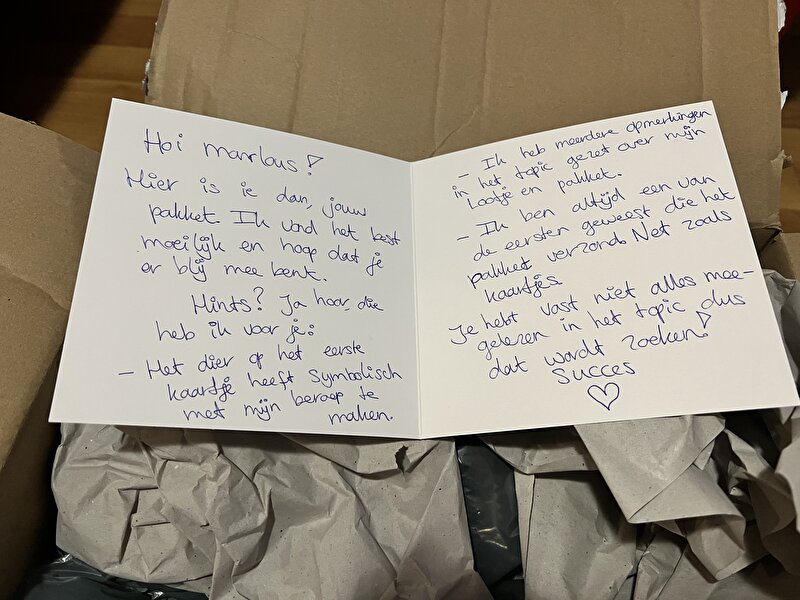 Hoi marlous!
Hier is ie dan, jouw
pakket. Ik vond het best
moeilijk en hoop dat je
er blij mee bent.
Hints? Ja hoor, die
heb ik voor je:
- Het dier op het eerste
kaartje heeft symbolisch
met mijn beroep te
maken.
- Ik heb meerdere opmerkingen
in het topic gezet over mijn
Lootje en pakket.
- Ik ben altijd een van
de eersten geweest die het
pakket verzond. Net zoals
kaartjes
Je hebt vast niet alles mee-
gelezen in het topic dus
dat wordt zoeken!
Succes